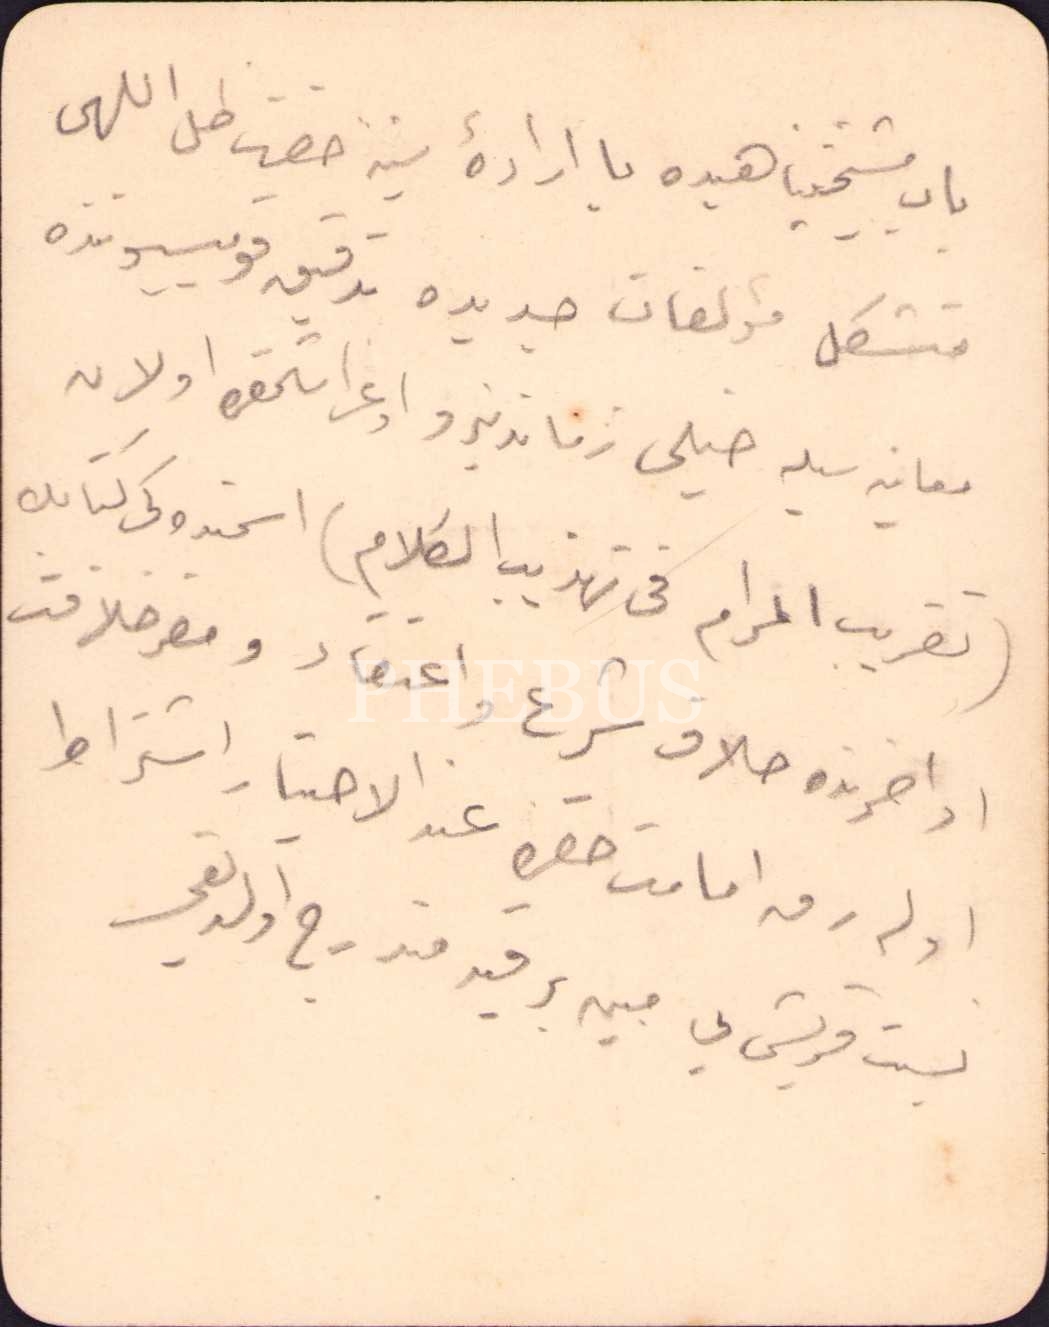 باب مشیختپناهیده با ارادهٔ سنیه حضرت ظل اللهی
متشکل مؤلفات جدیده تدقیق قومیسیوننده
معاینه سیله خیلی زماندنبرو اوغراشمقده اولان
(تقریب المرام فی تهذیب الکلام) اسمنده کی کتابك
اواخرنده خلاف شرع و اعتقاد و مضر خلافت
اوله رق امامت حقنده عند الاختیار اشتراط
نسبت قریشی یی مبین بر قید مندرج اولدیغی
PHEBUS